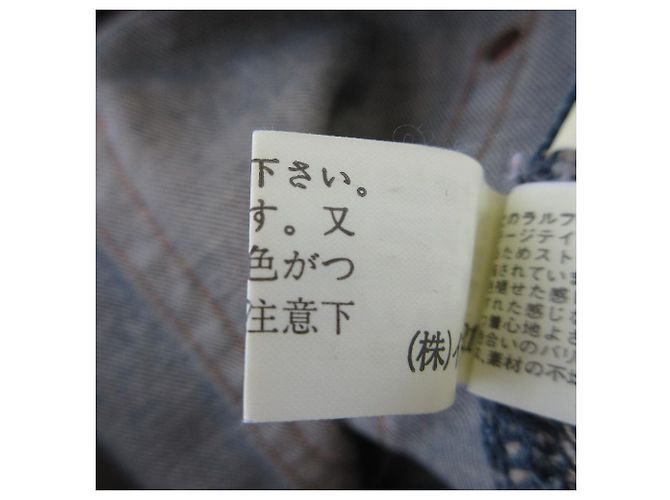 下さい。
す。又
色がつ
注意下
(株)イ
のラルフ
ージテイ
ためスト
されていま
褪せた感じ
れた感じな
着心地よさ
色合いのバリ
、素材の不均